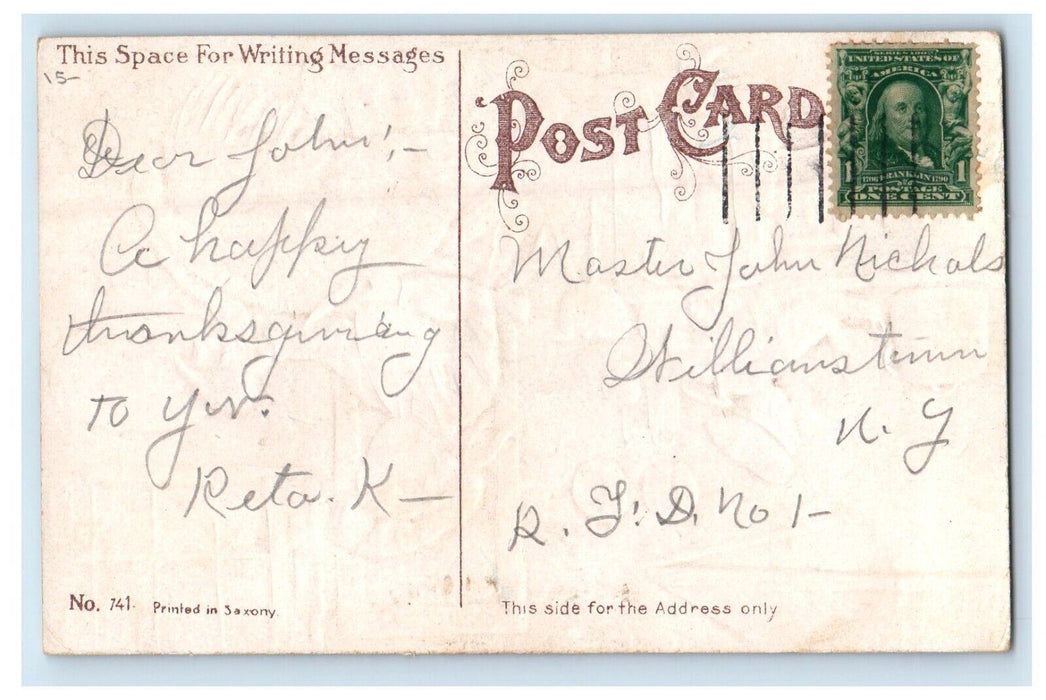 This Space For Writing Messages
15-
Dear John;-
A happy
thanksgiving
to you.
Reta. K-
No. 741. Printed in Saxony.
POST CARD
SERIES 1902
UNITED STATES OF
AMERICA
1 1706 FRANKLIN 1790 1
POSTAGE
ONE CENT
Master John Nichols
Williamstown
N. Y
R. F. D. No 1-
This side for the Address only